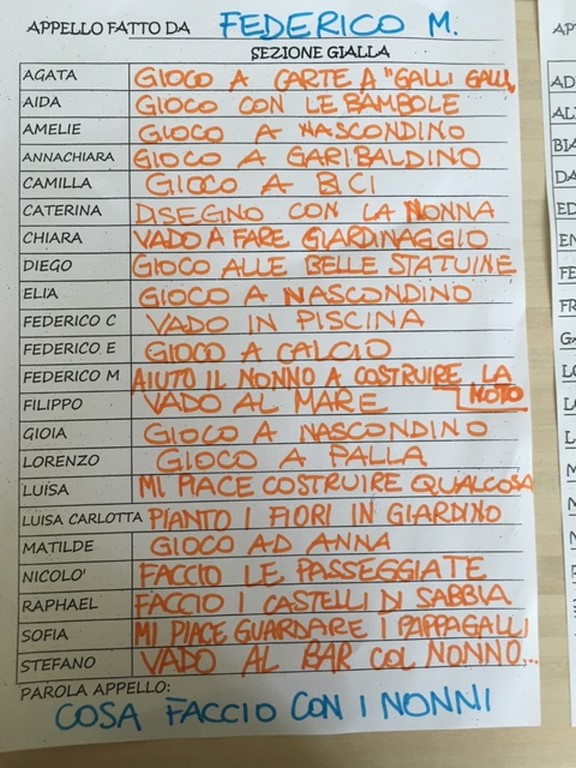 APPELLO FATTO DA FEDERICO M.
SEZIONE GIALLA
AGATA GIOCO A CARTE A "GALLI GALLI"
AIDA GIOCO CON LE BAMBOLE
AMELIE GIOCO A NASCONDINO
ANNACHIARA GIOCO A GARIBALDINO
CAMILLA GIOCO A BICI
CATERINA DISEGNO CON LA NONNA
CHIARA VADO A FARE GIARDINAGGIO
DIEGO GIOCO ALLE BELLE STATUINE
ELIA GIOCO A NASCONDINO
FEDERICO C VADO IN PISCINA
FEDERICO E GIOCO A CALCIO
FEDERICO M AIUTO IL NONNO A COSTRUIRE LA MOTO
FILIPPO VADO AL MARE
GIOIA GIOCO A NASCONDINO
LORENZO GIOCO A PALLA
LUISA MI PIACE COSTRUIRE QUALCOSA
LUISA CARLOTTA PIANTO I FIORI IN GIARDINO
MATILDE GIOCO AD ANNA
NICOLO' FACCIO LE PASSEGGIATE
RAPHAEL FACCIO I CASTELLI DI SABBIA
SOFIA MI PIACE GUARDARE I PAPPAGALLI
STEFANO VADO AL BAR COL NONNO...
PAROLA APPELLO:
COSA FACCIO CON I NONNI